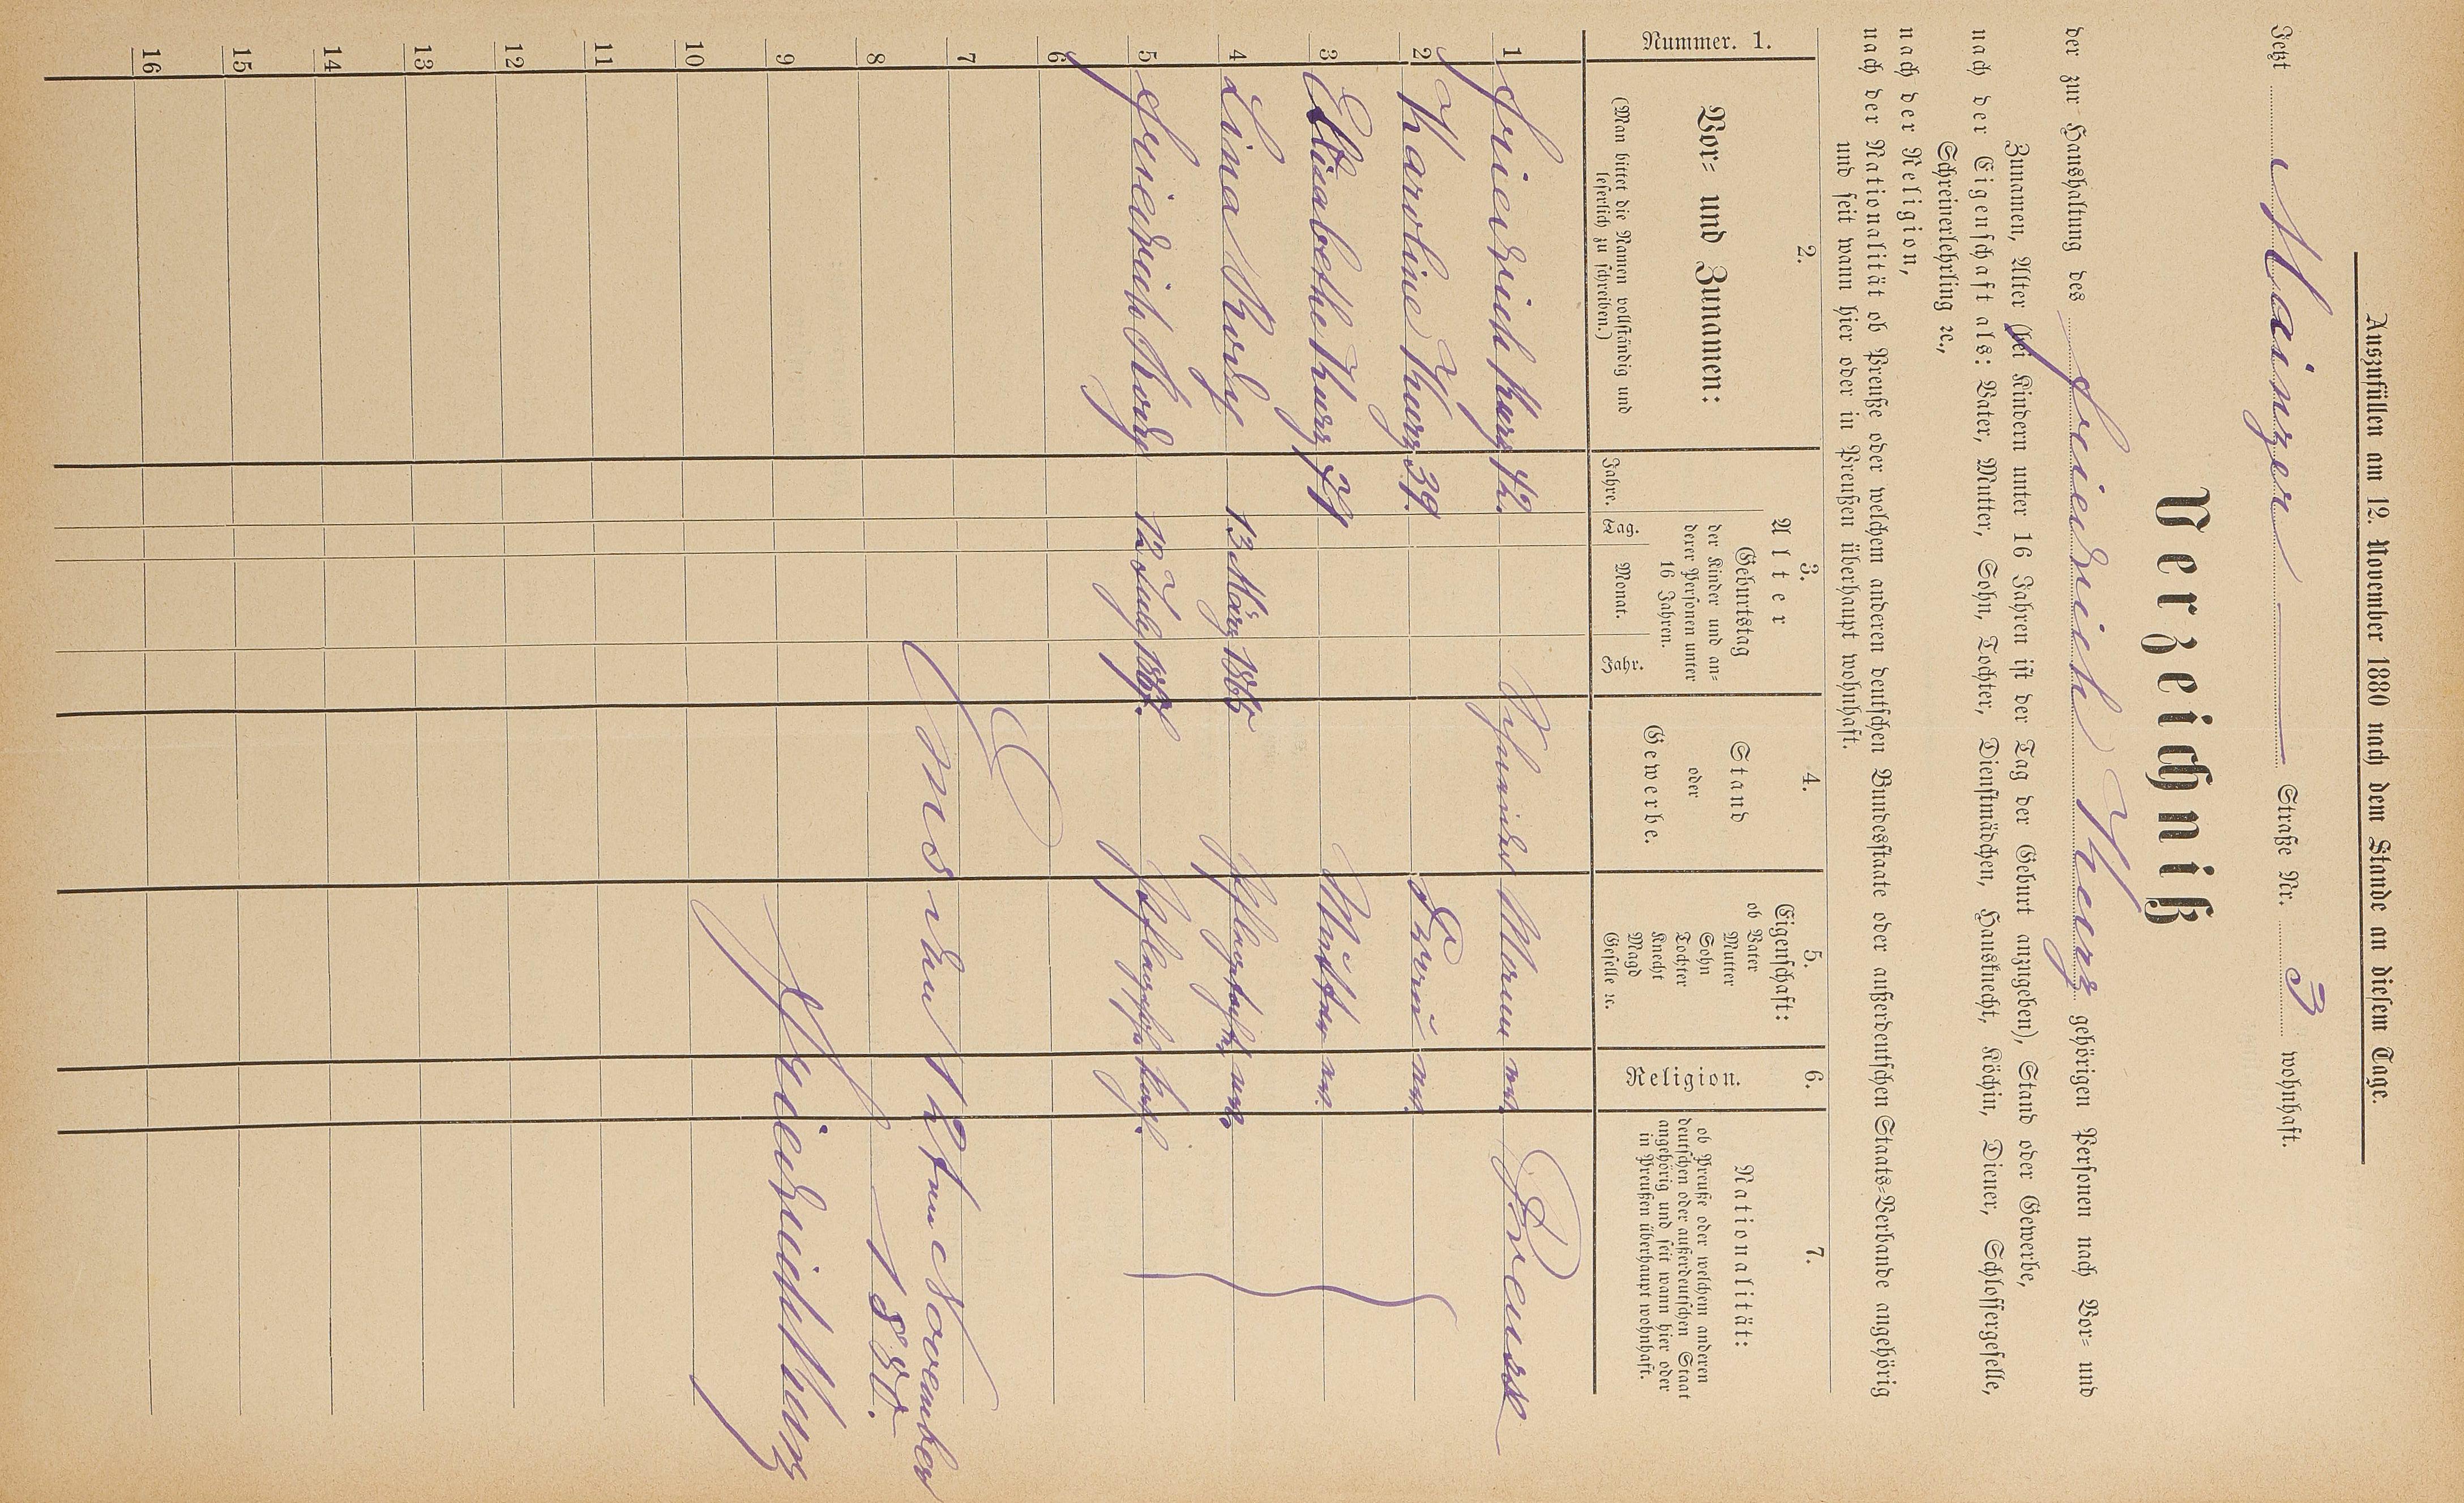 Auszufüllen am 12. November 1880 nach dem Stande an diesem Tage.
Jetzt Mainzer Straße Nr. 3 wohnhaft.
Verzeichniß
der zur Haushaltung des Friedrich Kurz gehörigen Personen nach Vor- und
Zunamen, Alter (bei Kindern unter 16 Jahren ist der Tag der Geburt anzugeben), Stand oder Gewerbe,
nach der Eigenschaft als: Vater, Mutter, Sohn, Tochter, Dienstmädchen, Hausknecht, Köchin, Diener, Schlossergeselle,
Schreinerlehrling ꝛc.,
nach der Religion,
nach der Nationalität ob Preuße oder welchem anderen deutschen Bundesstaate oder außerdeutschen Staats-Verbande angehörig
und seit wann hier oder in Preußen überhaupt wohnhaft.
Nummer. 1.
2.
Vor- und Zunamen:
(Man bittet die Namen vollständig und
leserlich zu schreiben.)
3.
Alter
Jahre.
Geburtstag
der Kinder und an-
derer Personen unter
16 Jahren.
Tag. Monat. Jahr.
4.
Stand
oder
Gewerbe.
5.
Eigenschaft:
ob Vater
Mutter
Sohn
Tochter
Knecht
Magd
Geselle ꝛc.
6.
Religion.
7.
Nationalität:
ob Preuße oder welchem anderen
deutschen oder außerdeutschen Staat
angehörig und seit wann hier oder
in Preußen überhaupt wohnhaft.
1 Friedrich Kurz 42. Mann ev. Preuße
2 Karoline Kurz 39. Frau ev.
3 Elisabethe Kurz 71 Mutter ev.
4 Lina 13 März 1865 Pflegetochter ev.
5 Friedrich 12 July 1867. Pflegesohn kath.
6
7
8 Ems den 12ten November
1880.
9 Friedrich Kurz
10
11
12
13
14
15
16